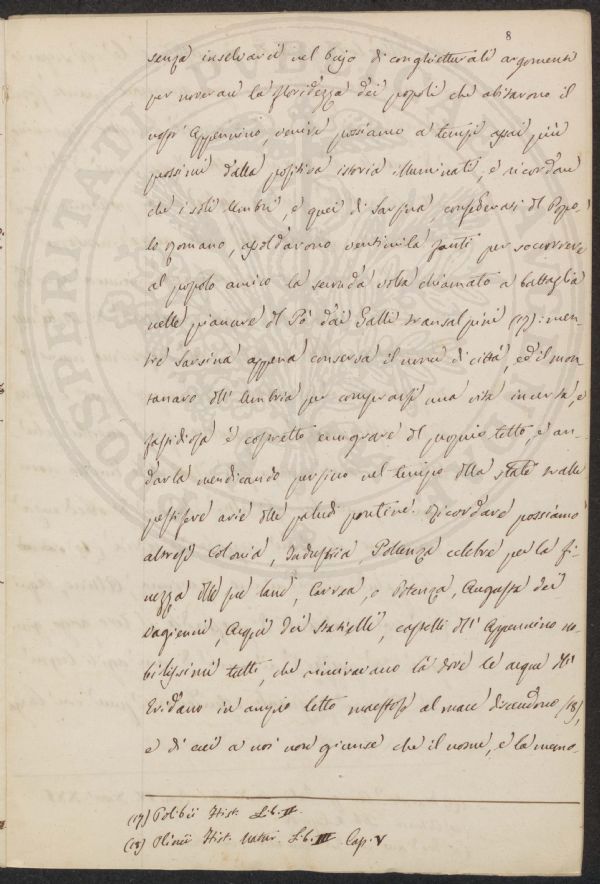 8
senza inselvarci nel bujo di conghietturali argomenti
per noverare la floridezza dei popoli che abitarono il
nostro Appennino, venire possiamo a tempi assai più
prossimi dalla positiva istoria illuminati, e ricordare
che i soli Umbri, e quei di Sarsina confederati del Popo-
lo Romano, assoldarono ventimila fanti per soccorrere
al popolo amico la seconda volta chiamato a battaglia
nelle pianure del Pò dai Galli transalpini (17): men-
tre Sarsina appena conserva il nome di città, ed il mon-
tanaro dell' Umbria per comperarsi una vita incerta, e
fastidiosa è costretto emigrare del proprio tetto, e an-
darla mendicando persino nel tempo della state nelle
pestifere arie delle paludi pontine. Ricordare possiamo
altresì Colonia, Industria, Pollenza celebre per la fi-
nezza delle sue lane, Carrea, o Potenza, Augusta dei
Vagienni, Acqui dei Statielli, castelli dell' Appennino no-
bilissimi tutti, che rimiravano là dove le acque dell'
Eridano in ampio letto maestoso al mare discendono (18),
e di cui a noi non giunse che il nome, e la memo-
(17) Polibii Hist. Lib. II.
(18) Plinii Hist. Natur. Lib. III Cap. V
PROSPERITATI PUBLICAE